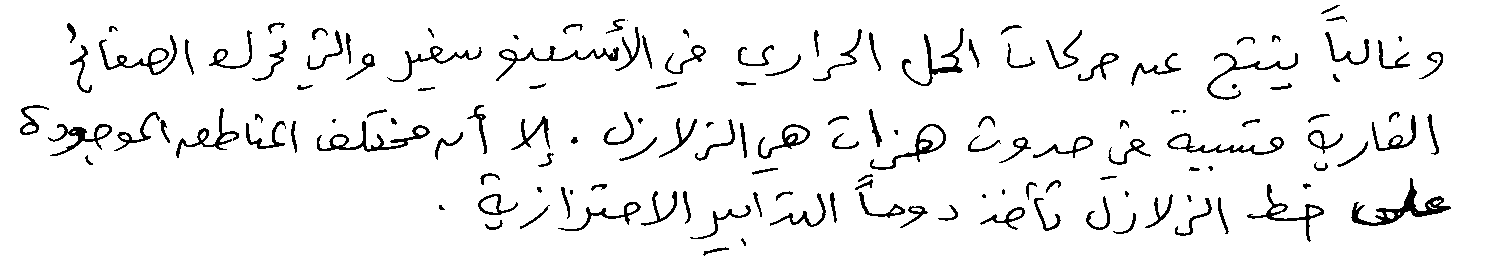 وغالباً ينتج عن حركات الحمل الحراري في الأستينو سفير والتي تحرك الصفائح
القارية متسببة في حدوث هزات هي الزلازل . إلا أن مختلف المناطق الموجودة
على خط الزلازل تأخذ دوماً التدابير الاحترازية .